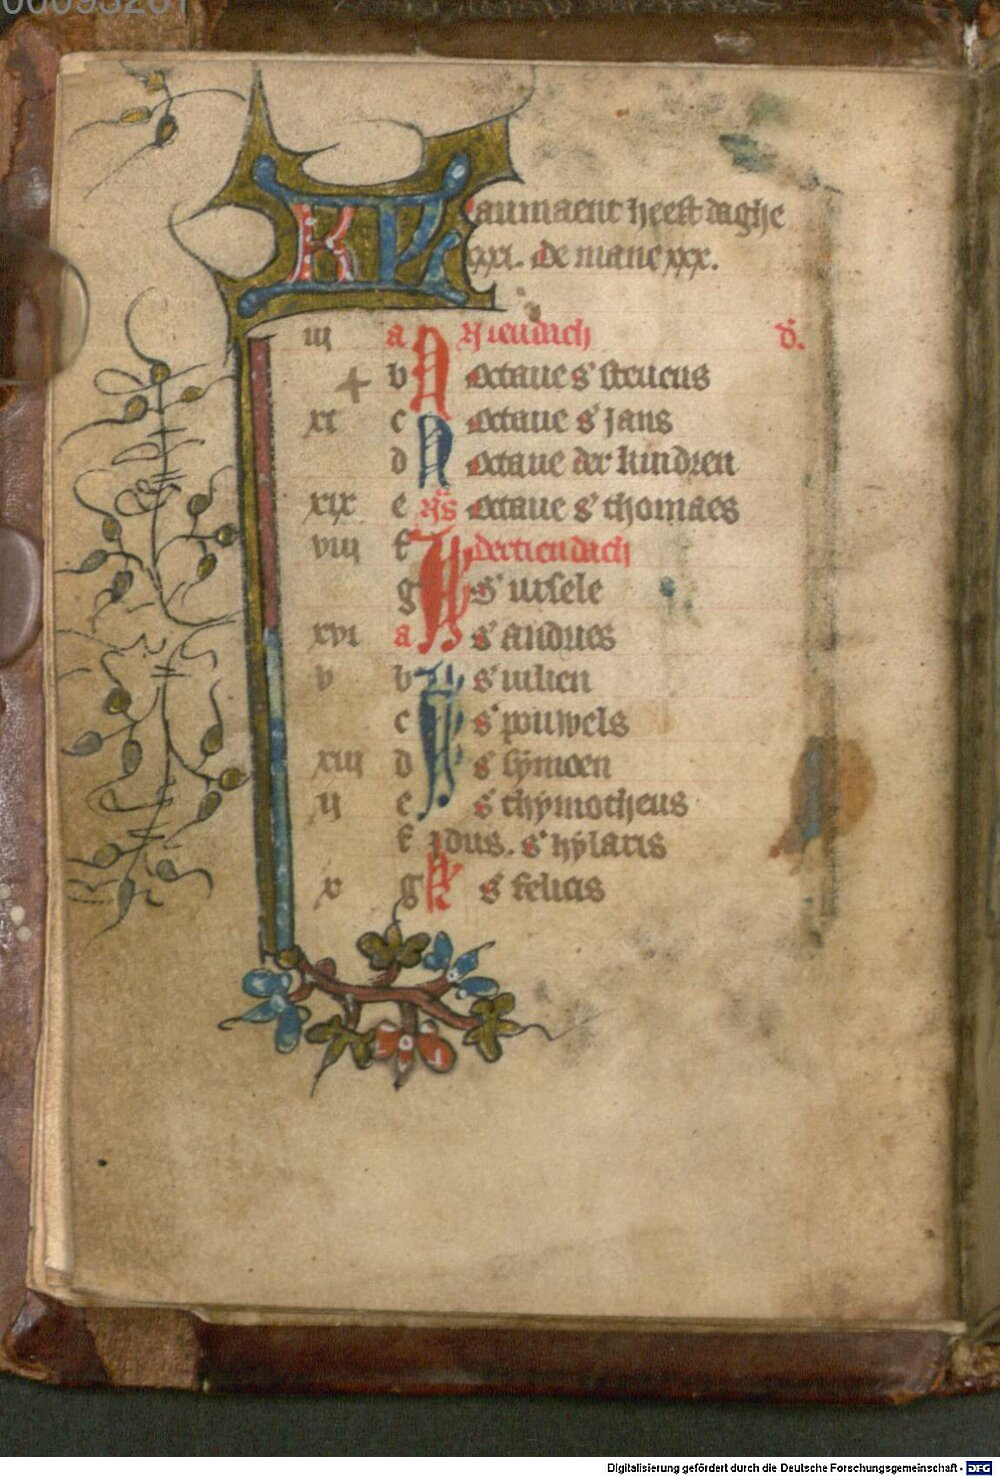 00093261
KL Laumaent heeft daghe
xxxi. de mane xxx.
iij a N ieudach d.
b octaue s' steuens
xi c N octaue s' jans
d octaue der kindren
xix e octaue s' thomaes
viij f N dertiendach
g s' ursele
xvi a s' andries
v b s' iulien
c s' pouwels
xiij d s' symoen
ij e s' thymotheus
f Jdus. s' hylaris
x g k s' felicis
Digitalisierung gefördert durch die Deutsche Forschungsgemeinschaft - DFG